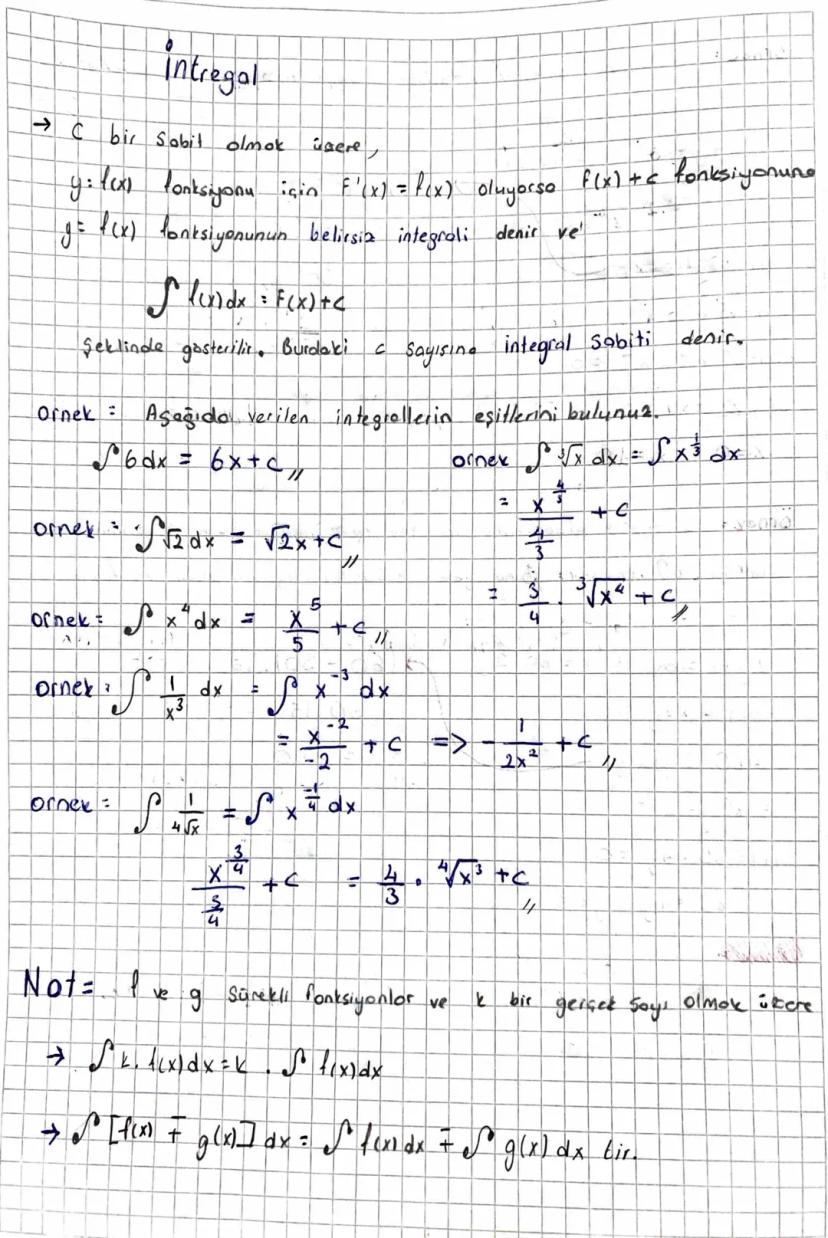 İntregal
→ C bir sabit olmak üzere,
y = f(x) fonksiyonu için F'(x) = f(x) oluyorsa F(x) + c fonksiyonuna
y = f(x) fonksiyonunun belirsiz integrali denir ve
∫ f(x) dx = F(x) + c
Şeklinde gösterilir. Burdaki c sayısına integral sabiti denir.
örnek = Aşağıda verilen integrallerin eşitlerini bulunuz.
∫ 6 dx = 6x + c //
örnek = ∫ √2 dx = √2x + c //
örnek = ∫ x⁴ dx = x⁵/5 + c //
örnek ∫ ³√x dx = ∫ x^(1/3) dx
= x^(4/3)/(4/3) + c
= 3/4 . ³√x⁴ + c //
örnek : ∫ 1/x³ dx = ∫ x⁻³ dx
= x⁻²/-2 + c => - 1/2x² + c //
örnek = ∫ 1/⁴√x = ∫ x^(-1/4) dx
x^(3/4)/(3/4) + c = 4/3 . ⁴√x³ + c //
Not = f ve g sürekli fonksiyonlar ve k bir gerçek sayı olmak üzere
→ ∫ k. f(x) dx = k . ∫ f(x) dx
→ ∫ [f(x) ∓ g(x)] dx = ∫ f(x) dx ∓ ∫ g(x) dx tir.